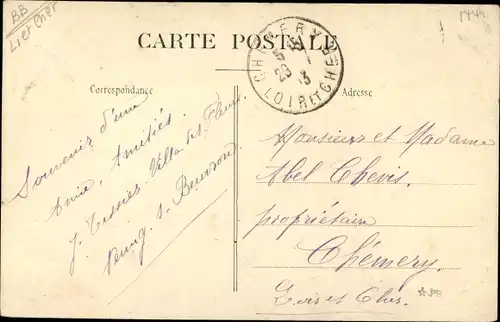 BB
Li et Cher
CARTE POSTALE
CHEMERY
LOIR ET CHER
Correspondance
Adresse
Souvenir d'une
Amie, Amitiés.
J. Tessier Villa des Fleurs
Neung s. Beuvron
Monsieur et Madame
Abel Thevis.
propriétaire
Chémery.
Loir et Cher.